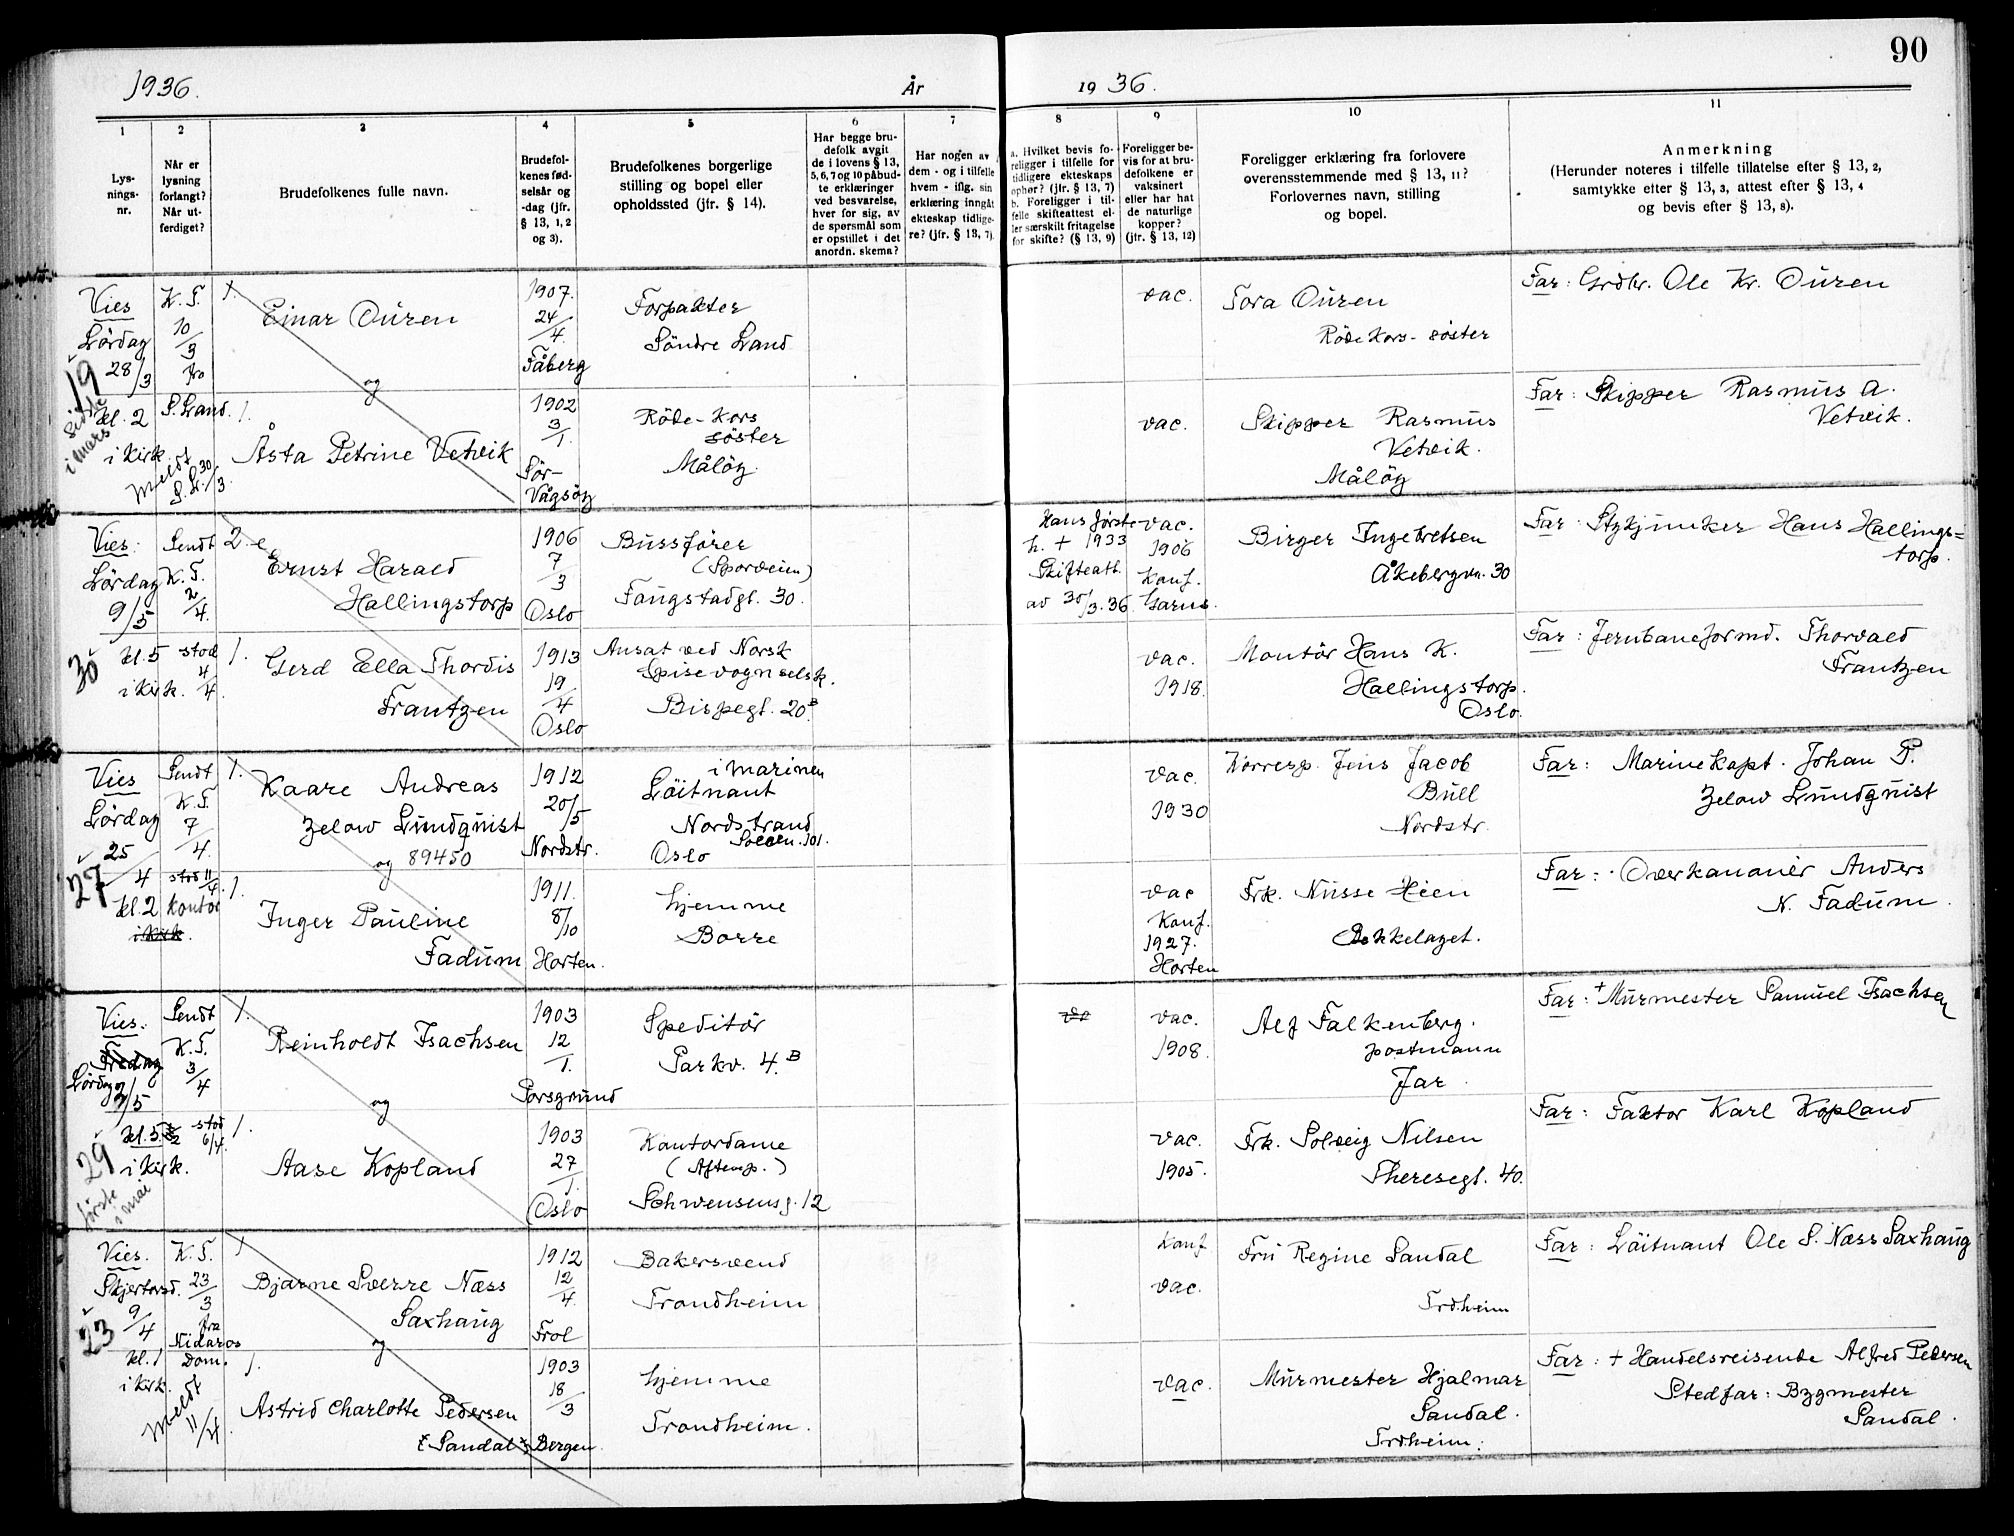 90
1936.
År
1936.
1
2
3
4
5
6
7
8
9
10
11
Lys-
nings-
nr.
Når er
lysning
forlangt?
Når ut-
ferdiget?
Brudefolkenes fulle navn.
Brudefol-
kenes fød-
selsår og
-dag (jfr.
§ 13, 1, 2
og 3).
Brudefolkenes borgerlige
stilling og bopel eller
opholdssted (jfr. § 14).
Har begge bru-
defolk avgit
de i lovens § 13,
5, 6, 7 og 10 påbud-
te erklæringer
ved besvarelse,
hver for sig, av
de spørsmål som
er opstillet i det
anordn. skema?
Har nogen av
dem - og i tilfelle
hvem - iflg. sin
erklæring inngåt
ekteskap tidlige-
re? (jfr. § 13, 7)
a. Hvilket bevis fo-
religger i tilfelle for
tidligere ekteskaps
ophør? (jfr. § 13, 7)
b. Foreligger i til-
felle skifteattest el-
ler særskilt fritagelse
for skifte? (§ 13, 9)
Foreligger be-
vis for at bru-
defolkene er
vaksinert
eller har hat
de naturlige
kopper?
(jfr. § 13, 12)
Foreligger erklæring fra forlovere
overensstemmende med § 13, 11?
Forlovernes navn, stilling
og bopel.
Anmerkning
(Herunder noteres i tilfelle tillatelse efter § 13, 2,
samtykke etter § 13, 3, attest efter § 13, 4
og bevis efter § 13, 8).
Vies
Lördag
28/3
19
kl. 2
i Kirk.
sidste
i mars
K. T.
10/3
fra
S. Land.
meldt
S. L. 30/3
1.
Einar Ouren
og
1.
Åsta Petrine Vetvik
1907.
24/4
Fåberg
1902
3/1.
Sör-
Vågsöy
Forpakter
Söndre Land
Röde-Kors
söster
Målöy.
vac.
vac.
Tora Ouren
Röde Kors-söster
Skipper Rasmus
Vetvik.
Målöy
Far: Grdbr. Ole Kr. Ouren
Far: Skipper Rasmus A.
Vetvik.
Vies.
Lördag
9/5
30
kl. 5
i Kirk.
Sendt
K. T.
2/4.
stod
4/4.
2. e
Ernst Harald
Hallingstorp
1.
Gerd Ella Thordis
Frantzen
1906
7/3
Oslo
1913
19/4
Oslo
Bussförer
(Sporveien)
Faugstadgt. 30.
Ansat ved Norsk
Spisevognselsk.
Bispegt. 20B
Hans förste
h. + 1933
Skifteatt.
av 30/3.36.
vac.
1906
Konf.
Garns.
vac.
1918.
Birger Ingebretsen
Åkebergvn. 30
Montör Hans K.
Hallingstorp.
Oslo.
Far: Stykjunker Hans Hallings=
torp.
Far: Jernbaneformd. Thorvald
Frantzen
Vies
Lördag
25/4
27
kl. 2
i Kirk.
Sendt
K. T.
7/4.
stod 11/4.
kontor
1.
Kaare Andreas
Zelow Lundquist
og 89450
1.
Inger Pauline
Fadum
1912
20/5
Nordstr.
1911.
8/10
Horten.
i marinen
Löitnant
Nordstrand
Oslo
hjemme
Borre
vac.
1930
vac
Konf.
1927.
Horten
Korresp. Jens Jacob
Bull
Nordstr.
Frk. Nusse Hien
Bekkelaget.
Far: Marinekapt. Johan P.
Zelow Lundquist
Far: Overkanonér Anders
N. Fadum.
Vies.
Fredag
Lördag
2/5
kl. 5
29
i Kirk.
förste
i mai
Sendt
K. T.
3/4
stod
6/4.
1.
Reinholdt Isachsen
og
1.
Aase Kopland
1903
12/1.
Porsgrund
1903
27/1.
Oslo
Speditör
Parkv. 4.B
Kontordame
(Aftenp.)
Schwensensg. 12
vac.
1908.
vac.
1905.
Alf Falkenberg.
postmann
Jar.
Frk. Solveig Nilsen
Theresegt. 40.
Far: + Murmester Samuel Isachsen
Far: Faktor Karl Kopland
Vies.
Skjertorsd.
9/4
23
kl. 1
i Kirk.
K. T.
23/3
fra
Nidaros
Dom.
meldt
11/4.
1
Bjarne Sverre Næss
Saxhaug
og
1.
Astrid Charlotte Pedersen
("Sandal")
1912
12/4.
Frol
1903
18/3
Bergen.
Bakersvend
Trondheim
hjemme
Trondheim.
Konf
vac.
vac.
Fru Regine Sandal
Trdheim
Murmester Hjalmar
Sandal.
Trdheim.
Far: Löitnant Ole S. Næss Saxhaug
Far: + Handelsreisende Alfred Pedersen
Stedfar: Bygmester
Sandal.